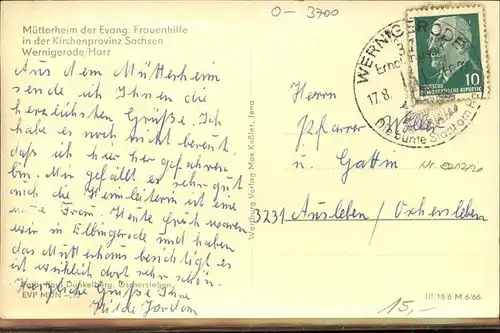 0-3700
Mütterheim der Evang. Frauenhilfe
in der Kirchenprovinz Sachsen
Wernigerode/Harz
Aus dem Mütterheim
sende ich Ihnen die
herzlichsten Grüße. Ich
habe es noch nicht bereut,
daß ich hier her gefahren
bin. Mir gefällt es sehr gut
auch die Heimleiterin ist eine
nette Frau. Heute früh waren
wir in Elbingerode und haben
das Mutterhaus besichtigt es
ist wirklich dort sehr schön.
Herzliche Grüße Ihre
Hilde Jordan
Foto: Dunkelberg, Oschersleben
EVP MDN
Wartburg Verlag Max Keßler, Jena
WERNIGERODE
17.8.
Die bunte Stadt am H
10
DEUTSCHE
DEMOKRATISCHE REPUBLIK
Herrn
Pfarrer
u. Gattin
3231 Ausleben / Oschersleben
III/18/6 M 6/66
15,-